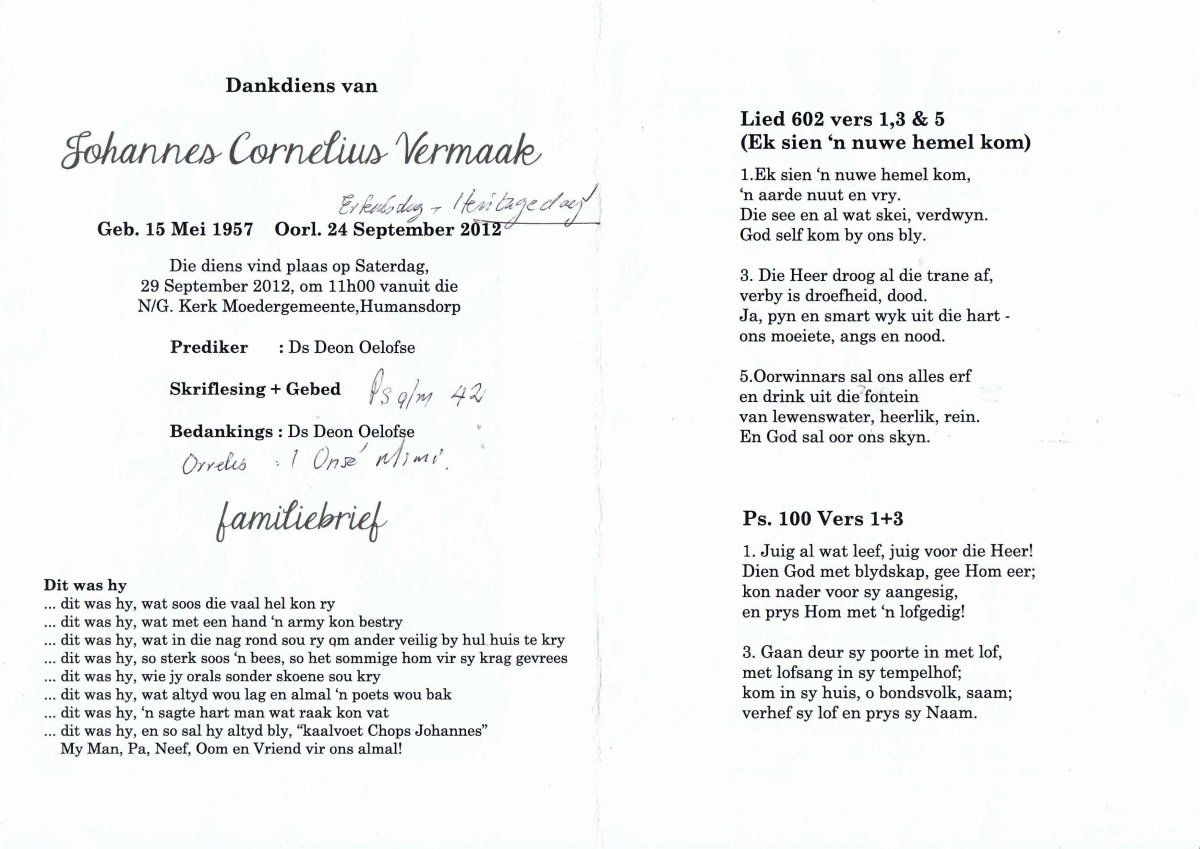 Dankdiens van
Johannes Cornelius Vermaak
Erfenisdag - Heritageday
Geb. 15 Mei 1957 Oorl. 24 September 2012
Die diens vind plaas op Saterdag,
29 September 2012, om 11h00 vanuit die
N/G. Kerk Moedergemeente,Humansdorp
Prediker : Ds Deon Oelofse
Skriflesing + Gebed Psalm 42
Bedankings : Ds Deon Oelofse
Orrelis : Mimi.
familiebrief
Dit was hy
... dit was hy, wat soos die vaal hel kon ry
... dit was hy, wat met een hand ‘n army kon bestry
... dit was hy, wat in die nag rond sou ry om ander veilig by hul huis te kry
... dit was hy, so sterk soos ‘n bees, so het sommige hom vir sy krag gevrees
... dit was hy, wie jy orals sonder skoene sou kry
... dit was hy, wat altyd wou lag en almal ‘n poets wou bak
... dit was hy, ‘n sagte hart man wat raak kon vat
... dit was hy, en so sal hy altyd bly, “kaalvoet Chops Johannes”
My Man, Pa, Neef, Oom en Vriend vir ons almal!
Lied 602 vers 1,3 & 5
(Ek sien ‘n nuwe hemel kom)
1.Ek sien ‘n nuwe hemel kom,
‘n aarde nuut en vry.
Die see en al wat skei, verdwyn.
God self kom by ons bly.
3. Die Heer droog al die trane af,
verby is droefheid, dood.
Ja, pyn en smart wyk uit die hart -
ons moeiete, angs en nood.
5.Oorwinnars sal ons alles erf
en drink uit die fontein
van lewenswater, heerlik, rein.
En God sal oor ons skyn.
Ps. 100 Vers 1+3
1. Juig al wat leef, juig voor die Heer!
Dien God met blydskap, gee Hom eer;
kon nader voor sy aangesig,
en prys Hom met ‘n lofgedig!
3. Gaan deur sy poorte in met lof,
met lofsang in sy tempelhof;
kom in sy huis, o bondsvolk, saam;
verhef sy lof en prys sy Naam.